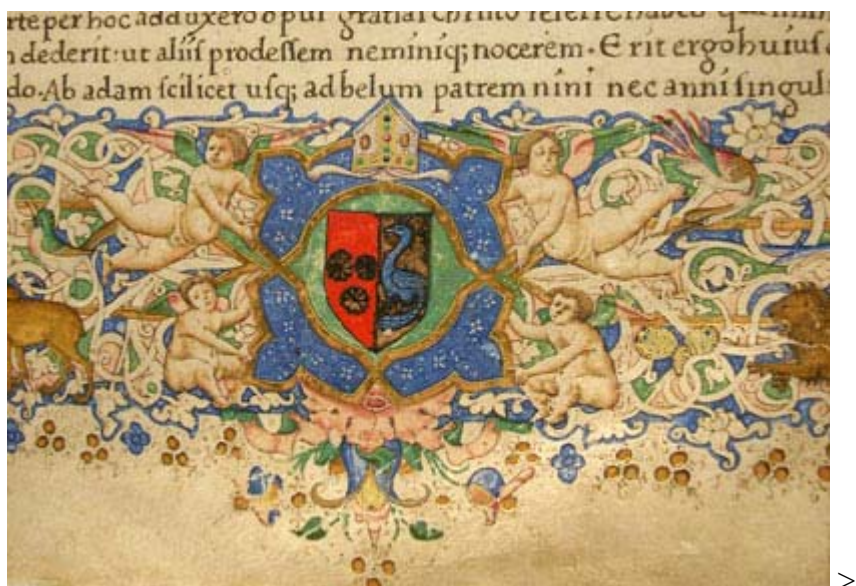 rte per hoc adduxero o pui gratiaf chrifto referre
dederit: ut aliif prodeſſem neminiq; nocerem· Erit ergo huiuſ
do·Ab adam ſcilicet uſq; ad belum patrem nini nec anni ſingul